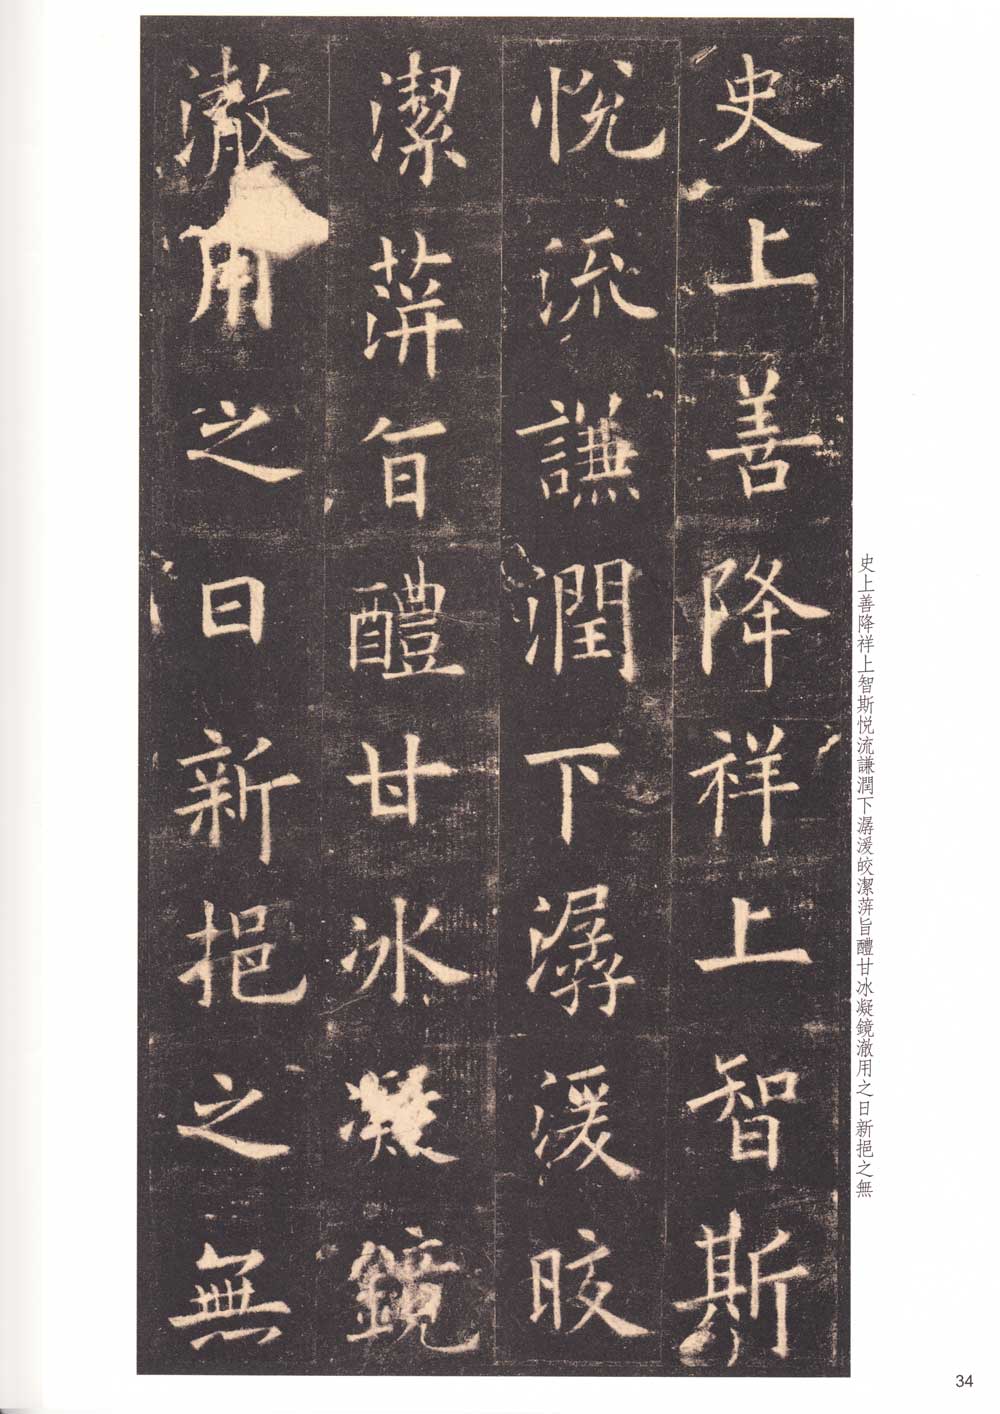 史上善降祥上智斯
悅流謙潤下潺湲皎
潔蓱旨醴甘冰凝鏡
澈用之日新挹之無
史上善降祥上智斯悅流謙潤下潺湲皎潔蓱旨醴甘冰凝鏡澈用之日新挹之無
34